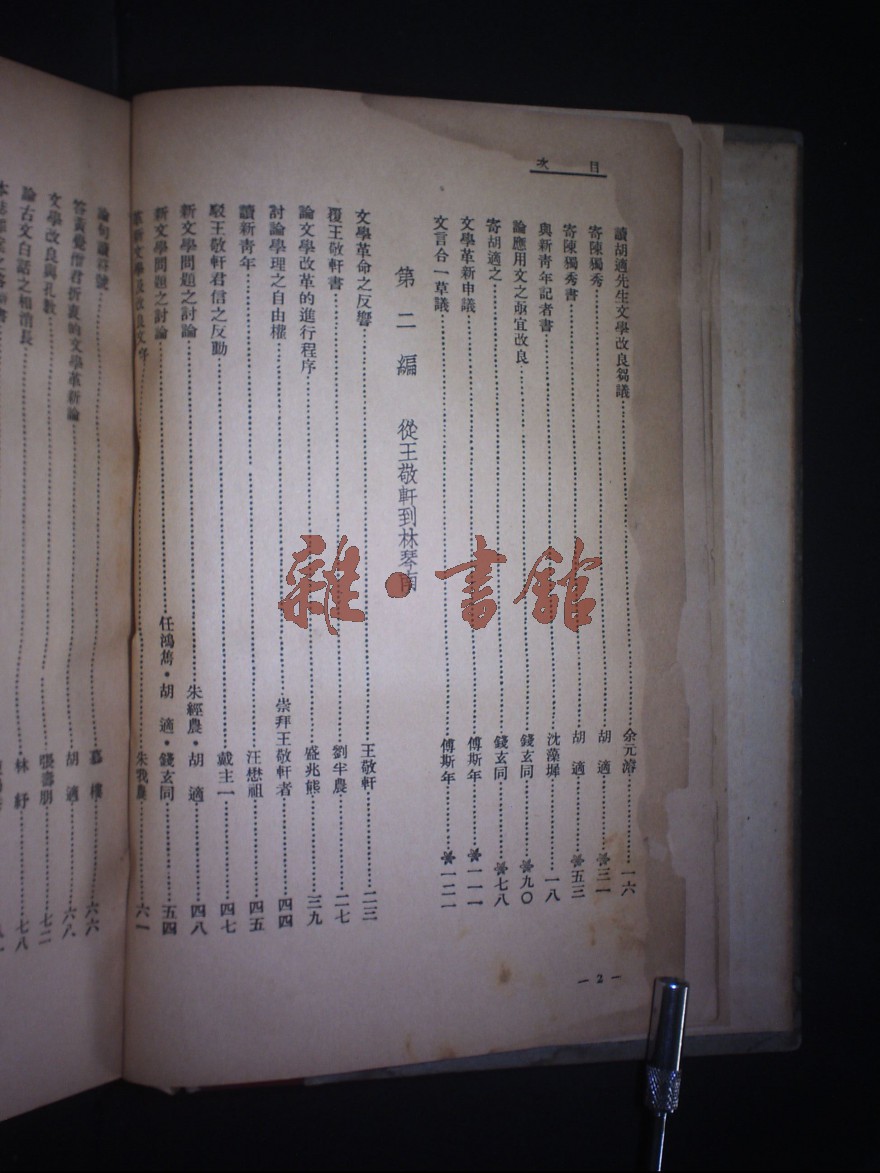 目次
讀胡適先生文學改良芻議……余元濬……一六
寄陳獨秀……胡適……※三一
寄陳獨秀書……胡適……※五三
與新青年記者書……沈藻墀……一八
論應用文之亟宜改良……錢玄同……※九〇
寄胡適之……錢玄同……※七八
文學革新申議……傅斯年……※一一一
文言合一草議……傅斯年……※一二一
第二編 從王敬軒到林琴南
文學革命之反響……王敬軒……二三
覆王敬軒書……劉半農……二七
論文學改革的進行程序……盛兆熊……三九
討論學理之自由權……崇拜王敬軒者……四四
讀新青年……汪懋祖……四五
駁王敬軒君信之反動……戴主一……四七
新文學問題之討論……朱經農・胡適……四八
新文學問題之討論……任鴻雋・胡適・錢玄同……五四
革新文學及改良文字……朱我農……六一
—2—
論句讀符號……慕樓……六六
答黃覺僧君折衷的文學革新論……胡適……六八
文學改良與孔教……張壽朋……七二
論古文白話之相消長……林紓……七八
雜・書館